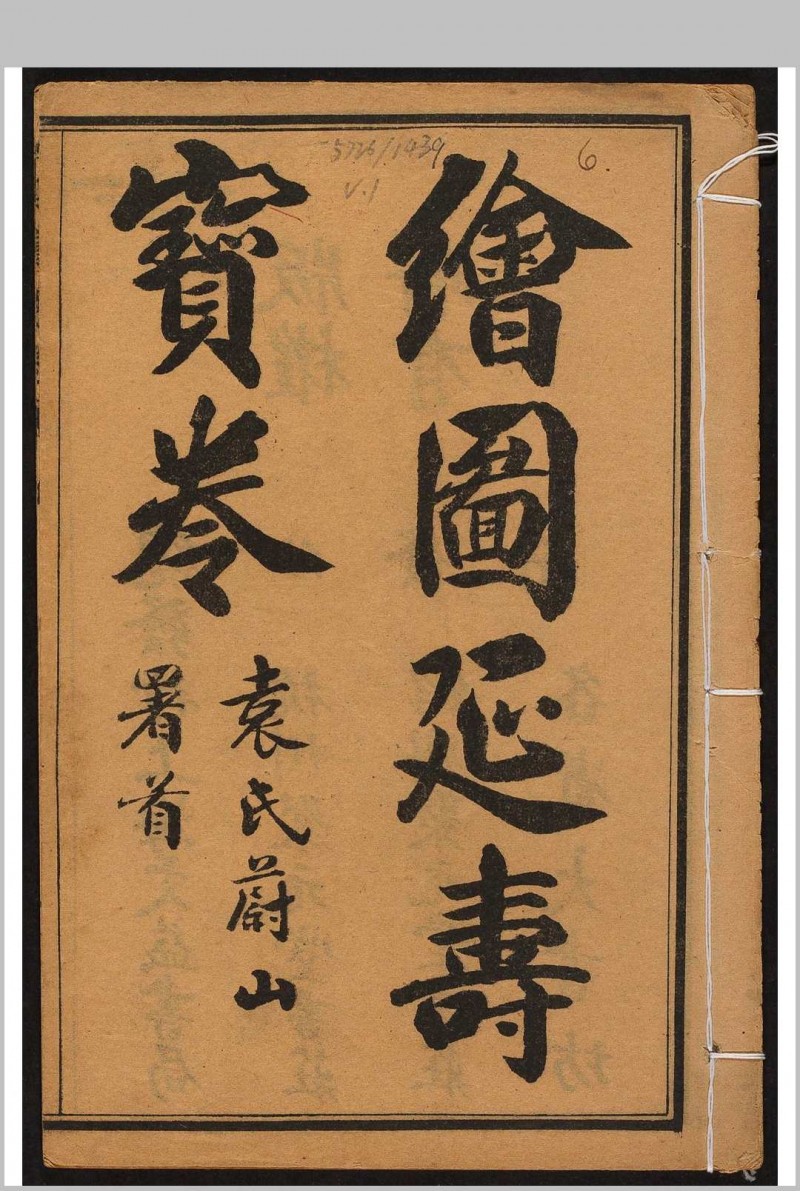 繪圖延壽
寳卷
袁氏蔚山
署首
5736/1439
v.1
6.